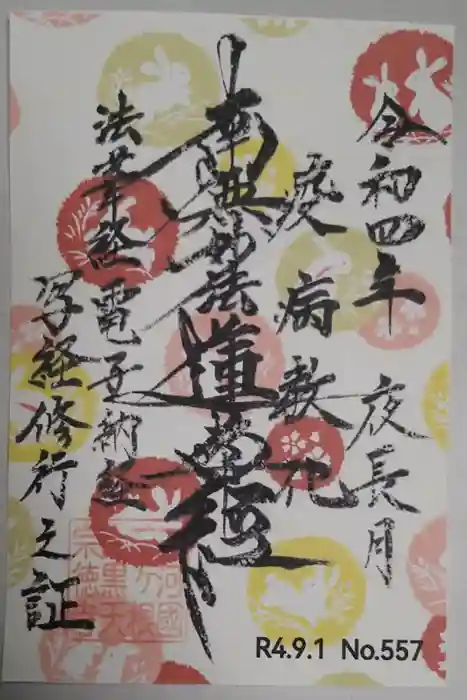 令和四年 夜長月
疫病救死
南無妙法蓮華経
法華経電子納経
写経修行之証
R4.9.1 No.557